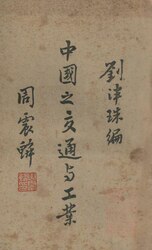 劉津珠編
中國之交通与工業
周震鱗